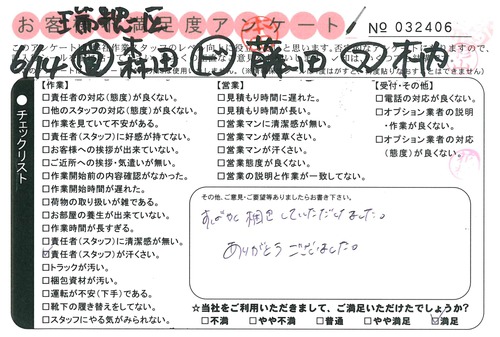 お客様満足度アンケート
№ 032406
瑞穂区
6/14
森田
藤田
チェックリスト
【作業】
□責任者の対応(態度)が良くない。
□他のスタッフの対応(態度)が良くない。
□作業を見ていて不安がある。
□責任者(スタッフ)に好感が持てない。
□お客様への挨拶が出来ていない。
□ご近所への挨拶・気遣いが無い。
□作業開始前の内容確認がなかった。
□作業開始時間が遅れた。
□荷物の取り扱いが雑である。
□お部屋の養生が出来ていない。
□作業時間が長すぎる。
□責任者(スタッフ)に清潔感が無い。
□責任者(スタッフ)が汗くさい。
□トラックが汚い。
□梱包資材が汚い。
□運転が不安(下手)である。
□靴下の履き替えをしてない。
□スタッフにやる気がみられない。
【営業】
□見積もり時間に遅れた。
□見積もり時間が長い。
□営業マンに清潔感が無い。
□営業マンが煙草くさい。
□営業マンが汗くさい。
□営業態度が良くない。
□営業の説明と作業が一致してない。
【受付・その他】
□電話の対応が良くない。
□オプション業者の説明・作業が良くない。
□オプション業者の対応(態度)が良くない。
その他、ご意見・ご要望等ありましたらお書き下さい。
すばやく梱包していただけました。
ありがとうございました。
☆当社をご利用いただきまして、ご満足いただけたでしょうか?
□不満 □やや不満 □普通 □やや満足 ☑満足